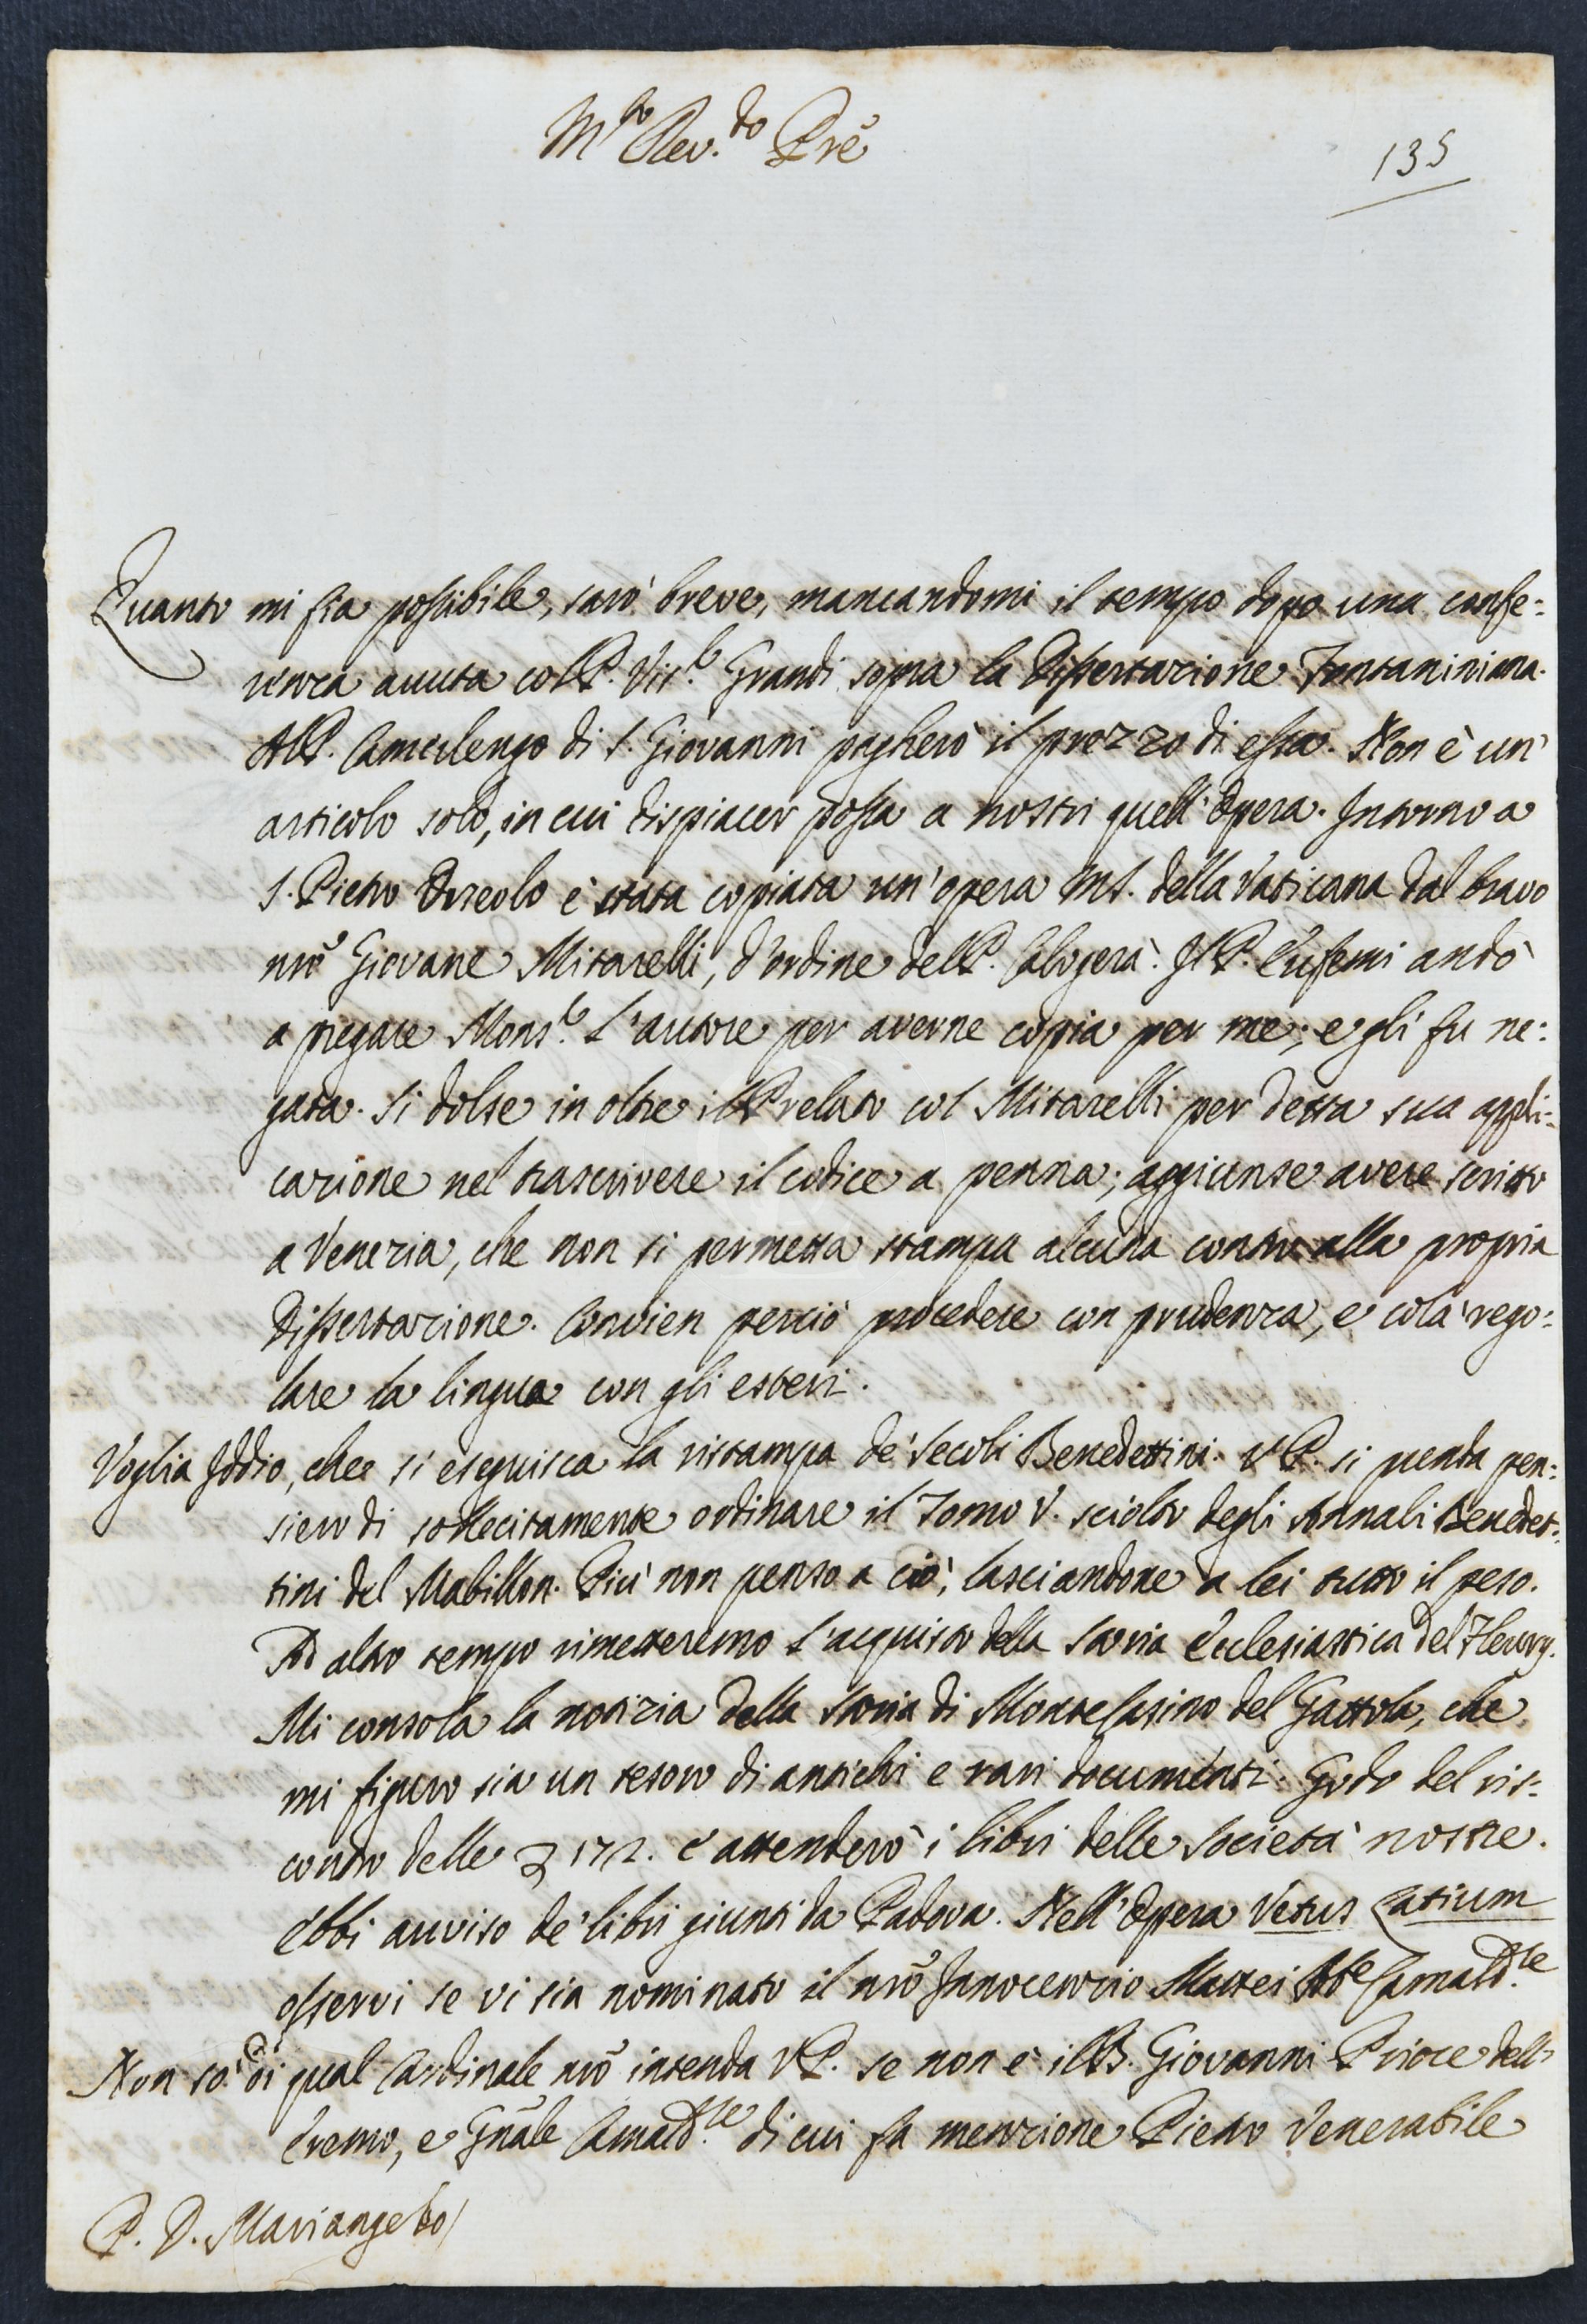 M.to Rev.do Prẽ
135
Quanto mi fia possibile, sarò breve, mancandomi il tempo dopo una confe:
renza avuta col P. Vis.e Grandi sopra la Dissertazione Fontaniniana.
Al P. Camerlengo di S. Giovanni pagherò il prezzo di essa. Non è un'
articolo solo, in cui dispiacer possa a nostri quell'Opera. Intorno a
S. Pietro Orseolo è stata copiata un'opera MS. della Vaticana dal bravo
nrõ Giovane Mitarelli, d'ordine del P. Calogerà. Il P. Eufemi andò
a pregare Mons.e l'autore per averne copia per me; e gli fu ne:
gata. Si dolse in oltre il Prelato col Mitarelli per detta sua appli:
cazione nel trascrivere il codice a penna; aggiunse avere scritto
a Venezia, che non si permetta stampa alcuna contro alla propria
Dissertazione. Convien perciò procedere con prudenza, e colà rego:
lare la lingua con gli esteri.
Voglia Iddio, che si eseguisca la ristampa de' Secoli Benedettini. V.P. si prenda pen:
siero di sollecitamente ordinare il Tomo V. sciolto degli Annali Benedet:
tini del Mabillon. Più non penso a ciò, lasciandone a lei tutto il peso.
Ad altro tempo rimetteremo l'acquisto della Storia Ecclesiastica del Fleury.
Mi consola la notizia della Storia di Monte Casino del Gattola, che
mi figuro sia un tesoro di antichi e rari documenti. Godo del ris:
contro delle 172. e attenderò i libri delle Società nostre.
Ebbi avviso de' libri giunti da Padova. Nell'Opera Vetus Latium
osservi se vi sia nominato il nrõ Innocenzio Mattei Ab.e Camald.le
Non so di qual Cardinale nrõ intenda V.P. se non è il B. Giovanni Priore dell'
Eremo, e Gnãle Camald.le di cui fa menzione Pietro Venerabile
P. D. Mariangelo